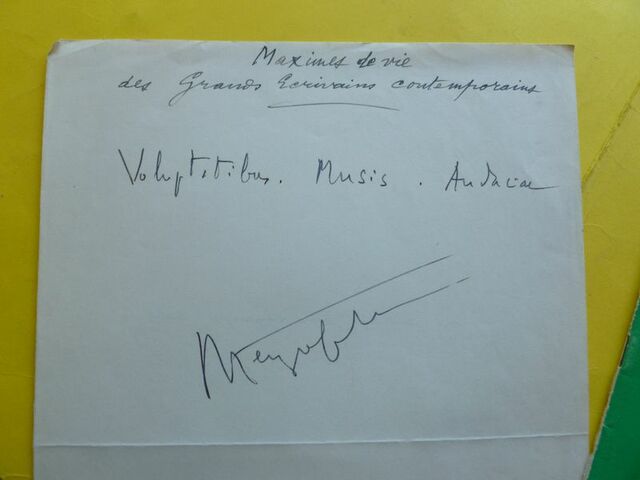 Maximes de vie
des Grands Ecrivains contemporains
Voluptatibus. Musis. Audaciae